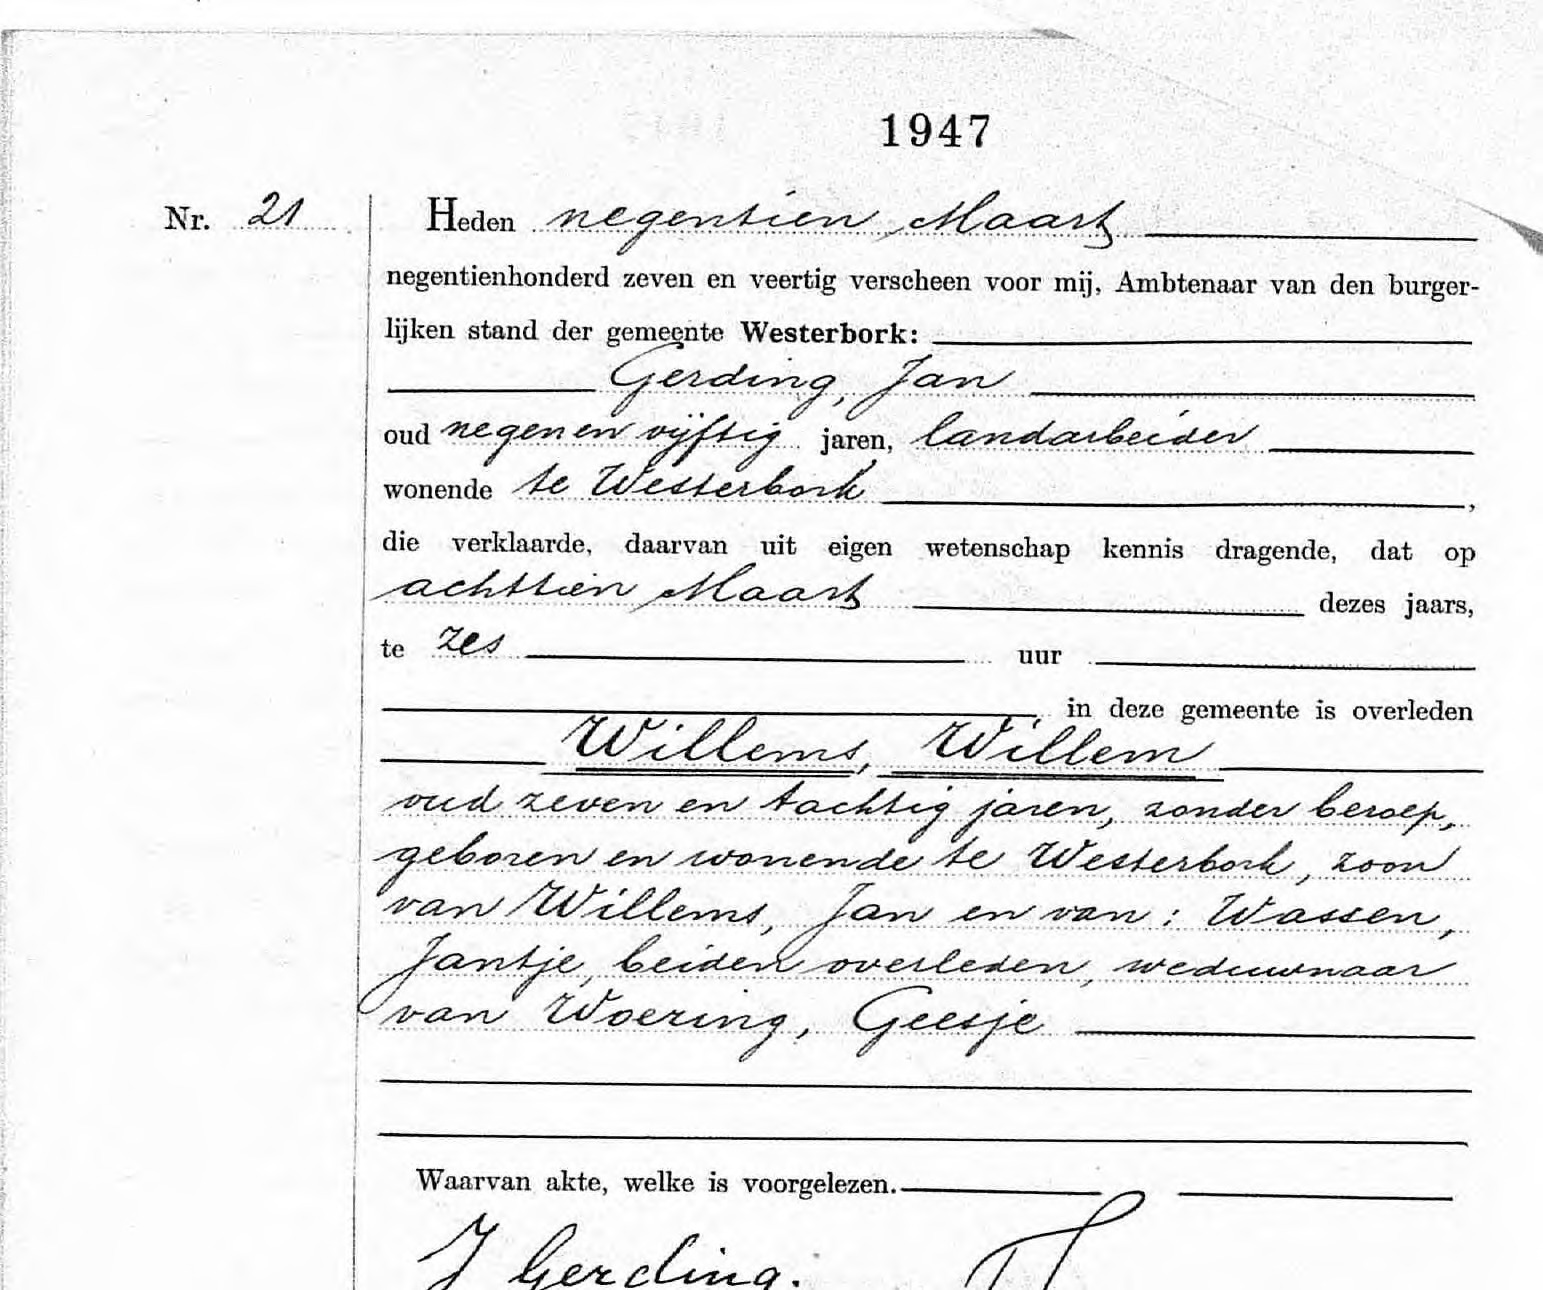 1947
Nr. 21
Heden negentien Maart
negentienhonderd zeven en veertig verscheen voor mij, Ambtenaar van den burger-
lijken stand der gemeente Westerbork:
Gerding, Jan
oud negen en vijftig jaren, landarbeider
wonende te Westerbork,
die verklaarde, daarvan uit eigen wetenschap kennis dragende, dat op
achttien Maart dezes jaars,
te zes uur
, in deze gemeente is overleden
Willems, Willem
oud zeven en tachtig jaren, zonder beroep,
geboren en wonende te Westerbork, zoon
van Willems, Jan en van: Wassen,
Jantje, beiden overleden, weduwnaar
van Woering, Geesje
Waarvan akte, welke is voorgelezen.
J Gerding.